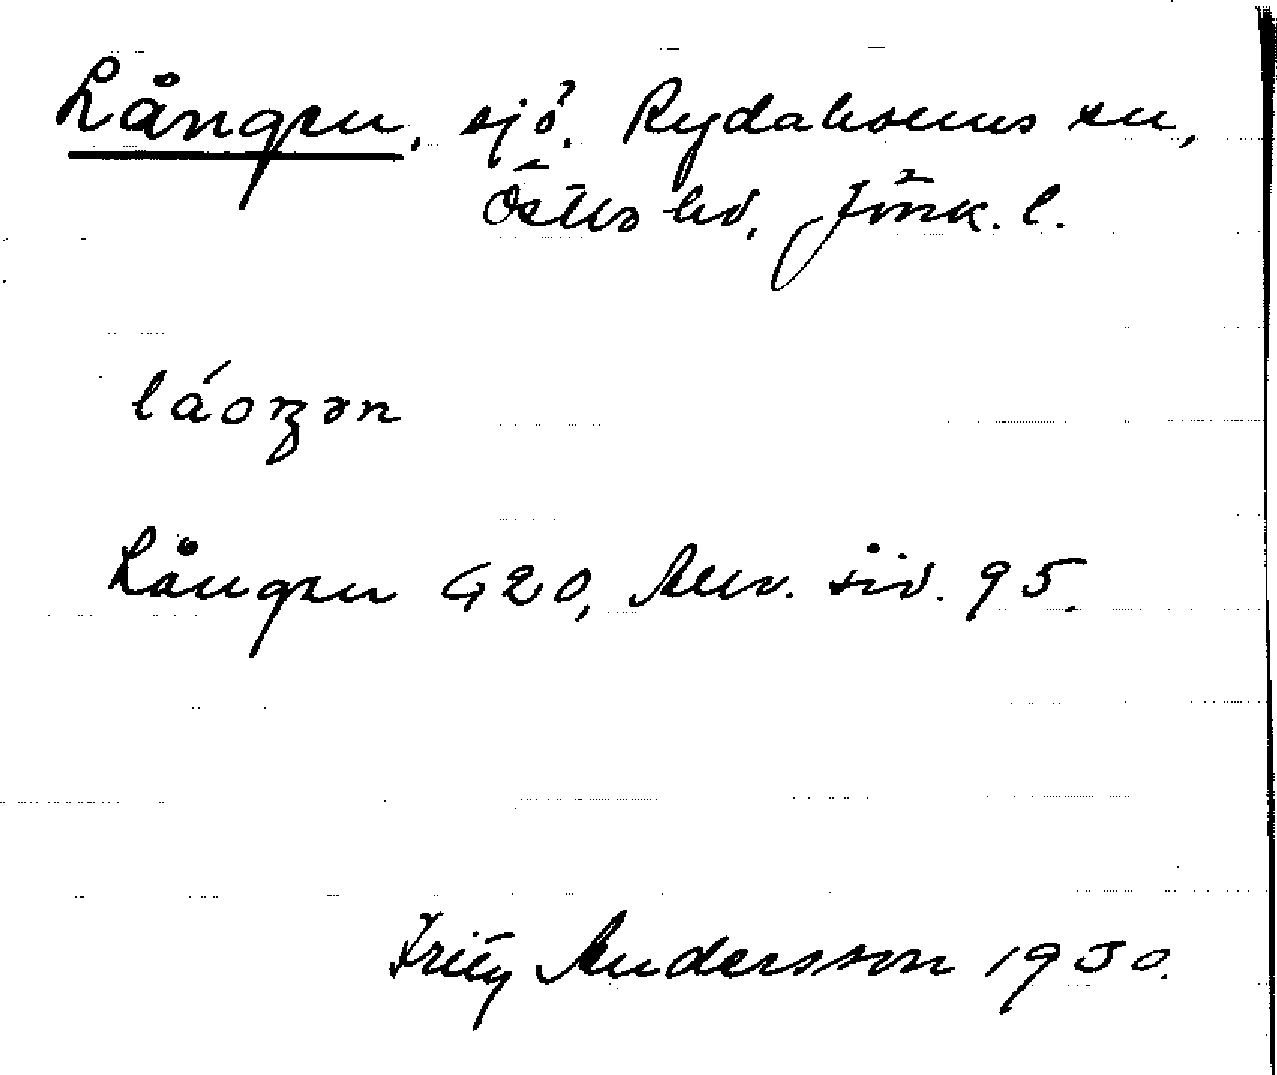 Lången, sjö. Rydaholms sn,
Östbo hd, Jönk. l.
láoŋən
Lången G20, Alw. siv. 95.
Fritz Andersson 1930.